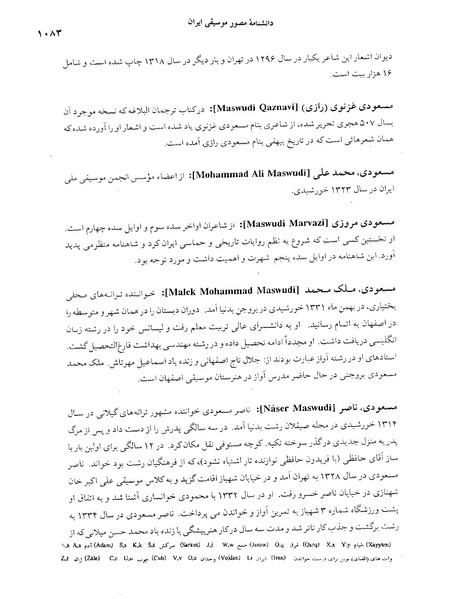 دانشنامهٔ مصور موسیقی ایران
۱۰۸۳
دیوان اشعار این شاعر یکبار در سال ۱۲۹۶ در تهران و بار دیگر در سال ۱۳۱۸ چاپ شده است و شامل
۱۶ هزار بیت است.
مسعودی غزنوی (رازی) [Maswudi Qaznavi]: در کتاب ترجمان البلاغه که نسخه موجود آن
بسال ۵۰۷ هجری تحریر شده، از شاعری بنام مسعودی غزنوی یاد شده است و اشعار او را آورده شده که
همان شعرهائی است که در تاریخ بیهقی بنام مسعودی رازی آمده است.
مسعودی، محمد علی [Mohammad Ali Maswudi]: از اعضاء مؤسس انجمن موسیقی ملی
ایران در سال ۱۳۲۳ خورشیدی.
مسعودی مروزی [Maswudi Marvazi]: از شاعران اواخر سده سوم و اوایل سده چهارم است.
او نخستین کسی است که شروع به نظم روایات تاریخی و حماسی ایران کرد و شاهنامه منظومی پدید
آورد. این شاهنامه در اوایل سده پنجم شهرت و اهمیت داشت و مورد توجه بود.
مسعودی، ملک محمد [Malek Mohammad Maswudi]: خواننده ترانه‌های محلی
بختیاری، در بهمن ماه ۱۳۳۱ خورشیدی در بروجن بدنیا آمد. دوران دبستان را در همان شهر و متوسطه را
در اصفهان به اتمام رسانید. او به دانشسرای عالی تربیت معلم رفت و لیسانس خود را در رشته زبان
انگلیسی دریافت داشت. او مجدداً ادامه تحصیل داده و در رشته مهندسی بهداشت فارغ‌التحصیل گشت.
استادهای او در رشته آواز عبارت بودند از: جلال تاج اصفهانی و زنده یاد اسماعیل مهرتاش. ملک محمد
مسعودی بروجنی در حال حاضر مدرس آواز در هنرستان موسیقی اصفهان است.
مسعودی، ناصر [Náser Maswudi]: ناصر مسعودی خواننده مشهور ترانه‌های گیلانی در سال
۱۳۱۴ خورشیدی در محله صیقلان رشت بدنیا آمد. در سه سالگی پدرش را از دست داد و پس از مرگ
پدر به منزل جدیدی درگذر سوخته تکیه، کوچه مستوفی نقل مکان کرد. در ۱۲ سالگی برای اولین بار با
ساز آقای حافظی (با فریدون حافظی نوازنده تار اشتباه نشود)، که از فرهنگیان رشت بود خواند. ناصر
مسعودی در سال ۱۳۲۸ به تهران آمد و در خیابان شهباز اقامت گزید و به کلاس موسیقی علی اکبر خان
شهنازی در خیابان ناصر خسرو رفت. او در سال ۱۳۳۲ با محمودی خوانساری آشنا شد و به اتفاق او
پشت ورزشگاه شماره ۳ شهباز به تمرین آواز و خواندن می پرداخت. ناصر مسعودی در سال ۱۳۳۴ به
رشت برگشت و جذب کار تاتر شد و مدت سه سال در کار هنرپیشگی با زنده یاد محمد حسن میلانی که از